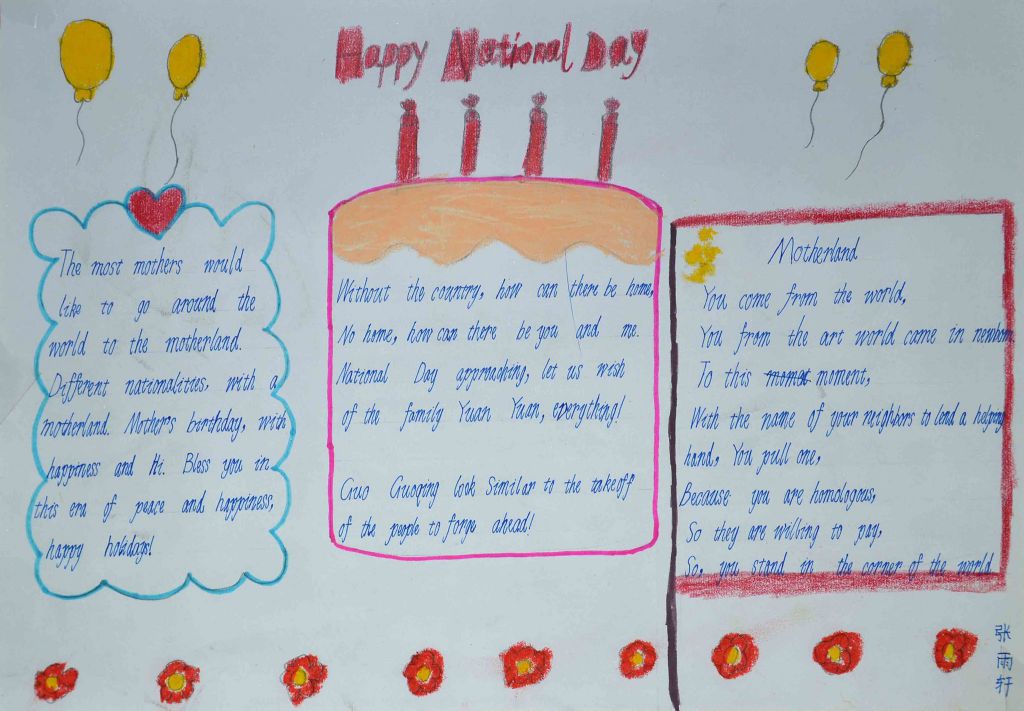 Happy National Day
The most mothers would
like to go around the
world to the motherland.
Different nationalities, with a
motherland. Mother's birthday, with
happiness and Hi. Bless you in
this era of peace and happiness,
happy holidays!
Without the country, how can there be home,
No home, how can there be you and me.
National Day approaching, let us wish
of the family Yuan Yuan, everything!
Guo Guoqing look Similar to the takeoff
of the people to forge ahead!
Motherland
You come from the world,
You from the art world came in newborn.
To this moment,
With the name of your neighbors to lend a helping
hand, You pull one,
Because you are homologous,
So they are willing to pay,
So, you stand in the corner of the world
张雨轩